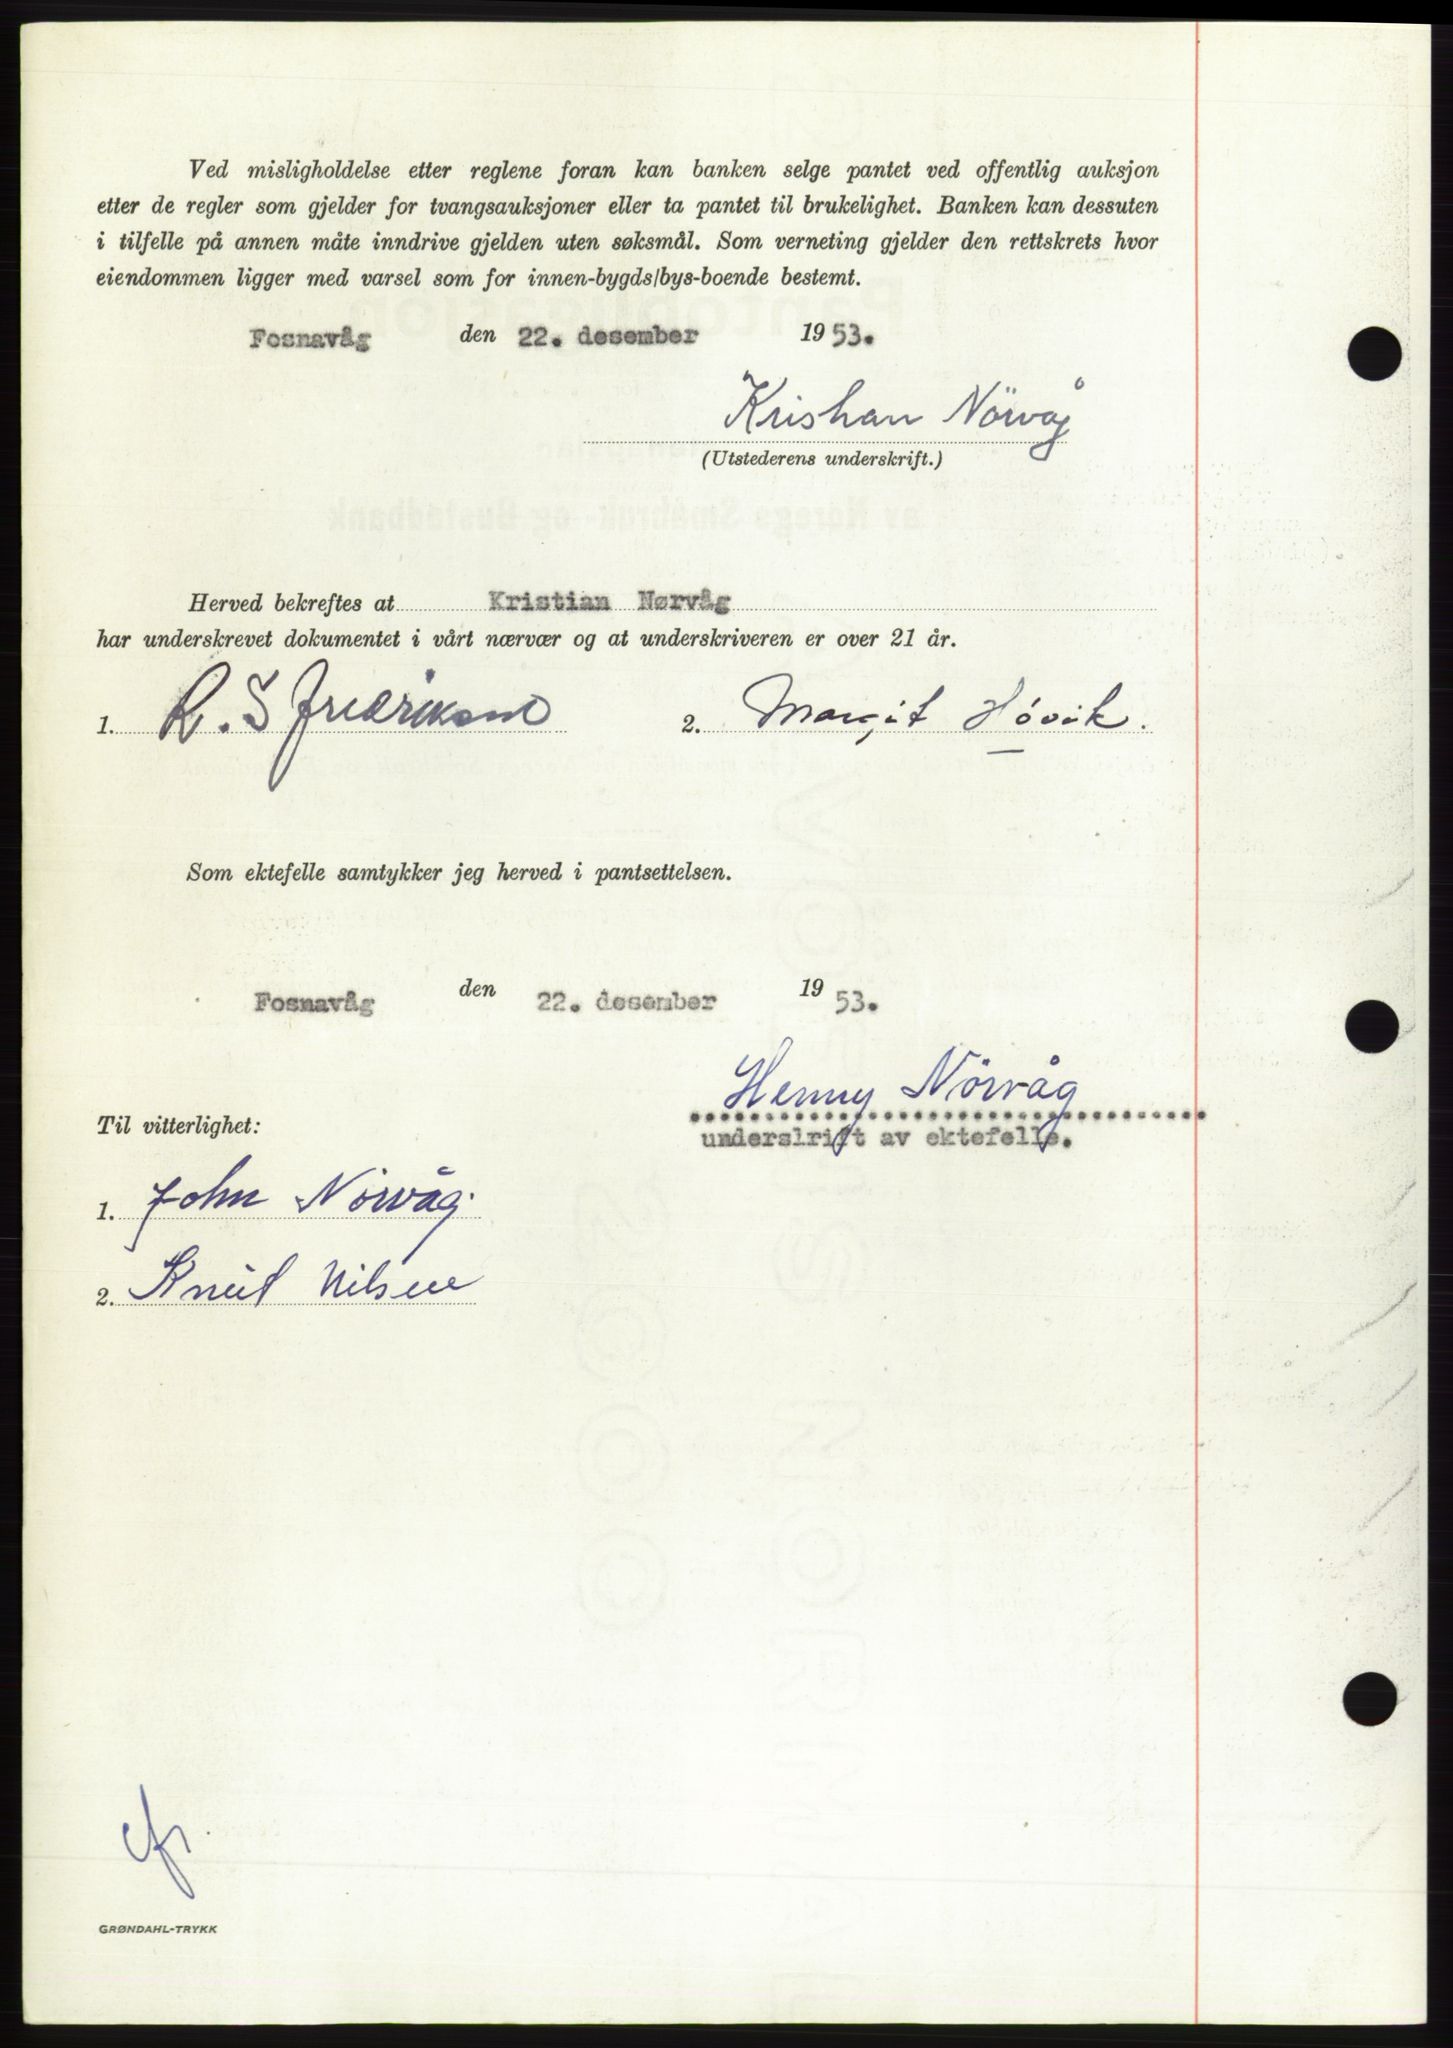 Ved misligholdelse etter reglene foran kan banken selge pantet ved offentlig auksjon
etter de regler som gjelder for tvangsauksjoner eller ta pantet til brukelighet. Banken kan dessuten
i tilfelle på annen måte inndrive gjelden uten søksmål. Som verneting gjelder den rettskrets hvor
eiendommen ligger med varsel som for innen-bygds/bys-boende bestemt.
Fosnavåg den 22. desember 1953.
Kristian Nörvåg
(Utstederens underskrift.)
Herved bekreftes at Kristian Nørvåg
har underskrevet dokumentet i vårt nærvær og at underskriveren er over 21 år.
1. R. S Fredriksen 2. Margit Hóvik.
Som ektefelle samtykker jeg herved i pantsettelsen.
Fosnavåg den 22. desember 1953.
Henny Nörvåg
Til vitterlighet:
underslrift av ektefelle.
1. John Nörvåg.
2. Knut Nilsen
GRØNDAHL-TRYKK